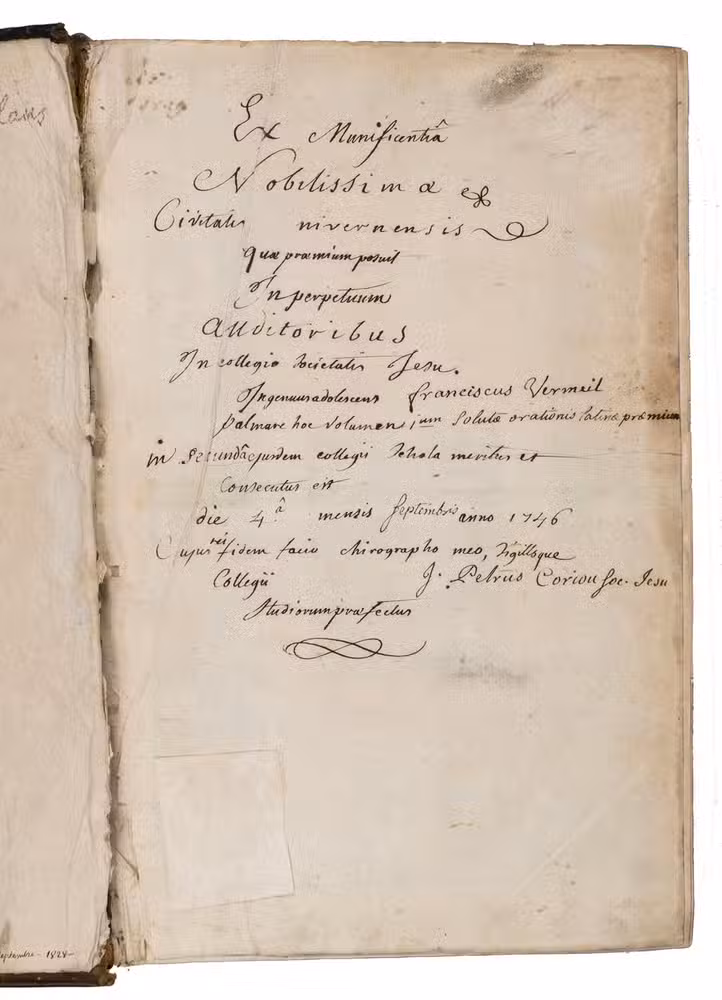 laus
Ex Munificentiâ
Nobilissimæ &
Civitatis nivernensis
Quæ præmium posuit
In perpetuum
Auditoribus
In collegio Societatis Jesu.
Ingenuus adolescens franciscus Vermeil
palmare hoc volumen ium Solutæ orationis latinæ præmium
in Secundâ ejusdem collegii Schola meritus et
Consecutus est
die 4.â mensis Septembris anno 1746
Cujus rei fidem facio chirographo meo, Sigilloque
Collegii J. Petrus Coriou Soc. Jesu
Studiorum præfectus
septembre - 1828-